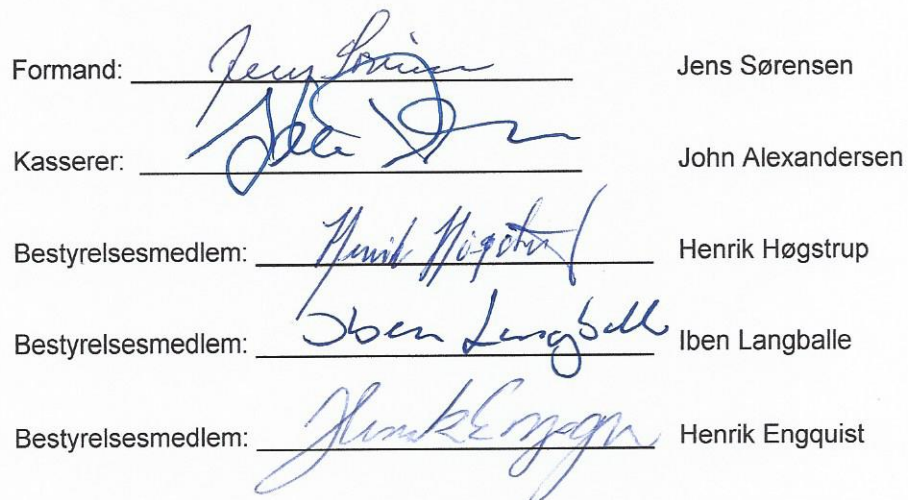 Formand: Jens Sørensen
Kasserer: John Alexandersen
Bestyrelsesmedlem: Henrik Høgstrup Henrik Høgstrup
Bestyrelsesmedlem: Iben Langballe Iben Langballe
Bestyrelsesmedlem: Henrik Engquist